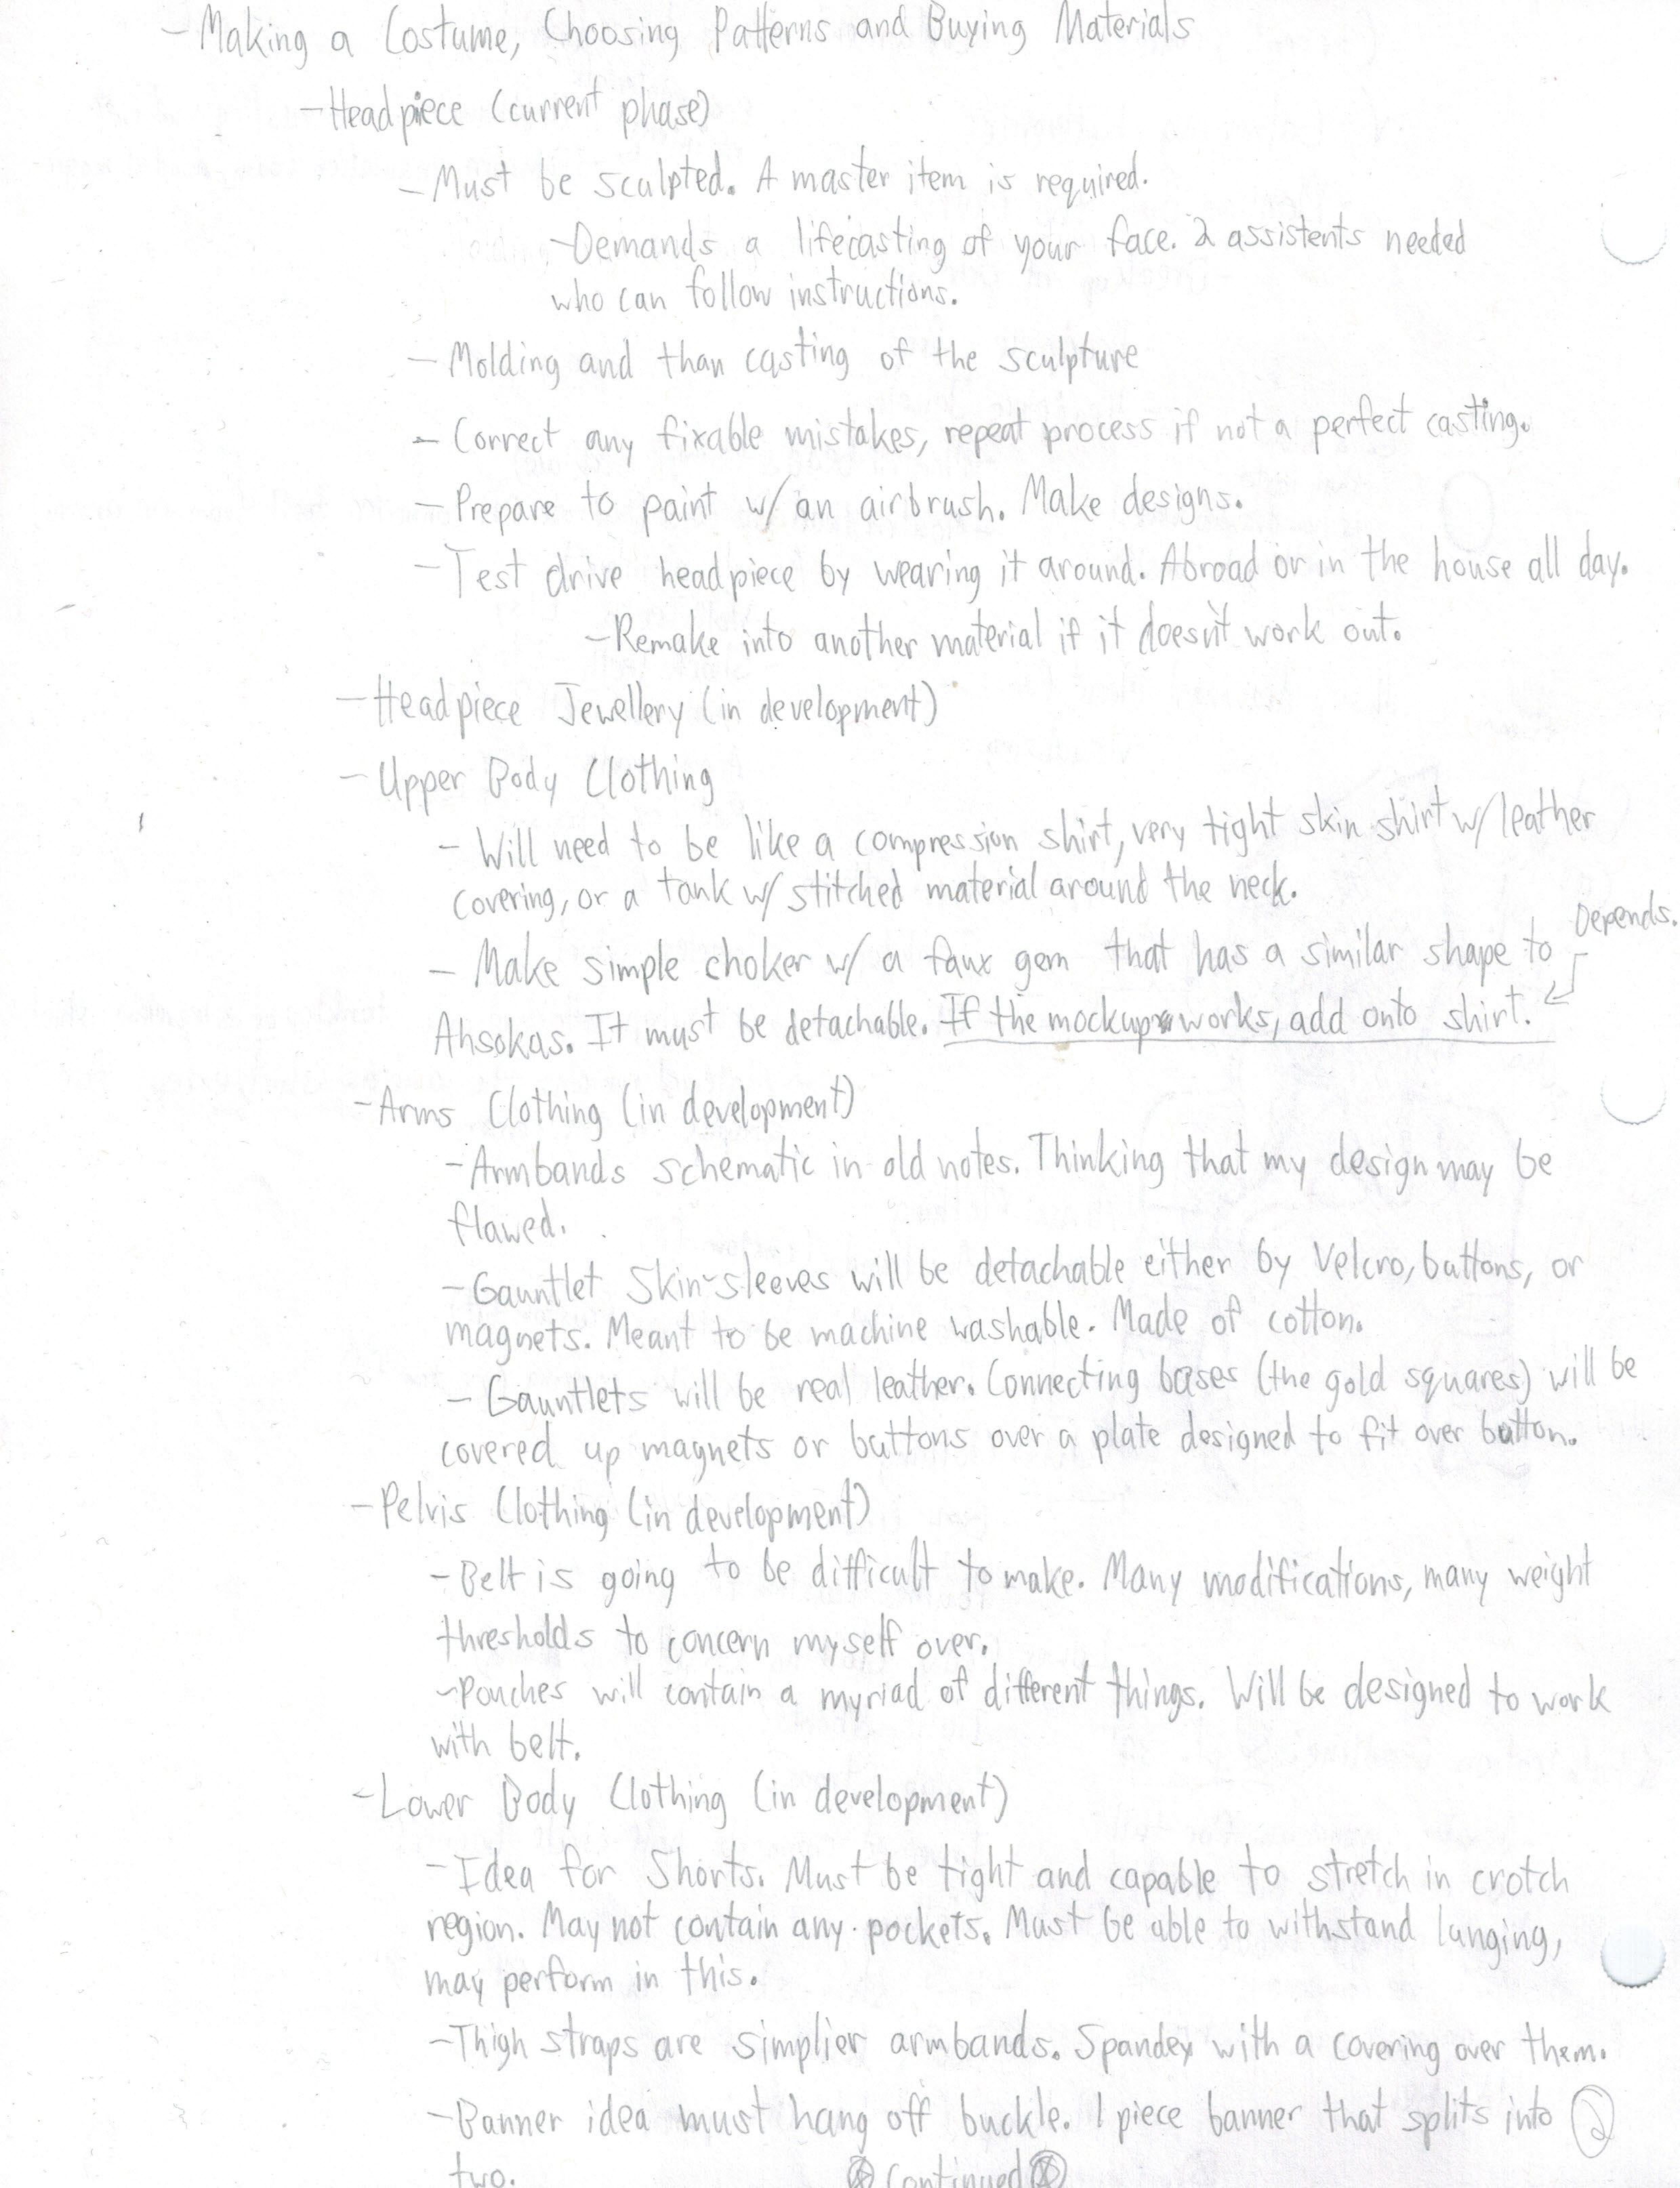 - Making a Costume, Choosing Patterns and Buying Materials
- Headpiece (current phase)
- Must be sculpted. A master item is required.
- Demands a lifecasting of your face. 2 assistents needed
who can follow instructions.
- Molding and than casting of the sculpture
- Correct any fixable mistakes, repeat process if not a perfect casting.
- Prepare to paint w/ an airbrush. Make designs.
- Test drive headpiece by wearing it around. Abroad or in the house all day.
- Remake into another material if it doesn't work out.
- Headpiece Jewellery (in development)
- Upper Body Clothing
- Will need to be like a compression shirt, very tight skin shirt w/ leather
covering, or a tank w/ stitched material around the neck.
Depends.
- Make simple choker w/ a faux gem that has a similar shape to
Ahsokas. It must be detachable. If the mockup works, add onto shirt.
- Arms Clothing (in development)
- Armbands schematic in old notes. Thinking that my design may be
flawed.
- Gauntlet Skin-sleeves will be detachable either by Velcro, buttons, or
magnets. Meant to be machine washable. Made of cotton.
- Gauntlets will be real leather. Connecting bases (the gold squares) will be
covered up magnets or buttons over a plate designed to fit over button.
- Pelvis Clothing (in development)
- Belt is going to be difficult to make. Many modifications, many weight
thresholds to concern myself over.
- Pouches will contain a myriad of different things. Will be designed to work
with belt.
- Lower Body Clothing (in development)
- Idea for Shorts. Must be tight and capable to stretch in crotch
region. May not contain any pockets. Must be able to withstand lunging,
may perform in this.
- Thigh straps are simplier armbands. Spandex with a covering over them.
- Banner idea must hang off buckle. 1 piece banner that splits into 2
two.
Continued